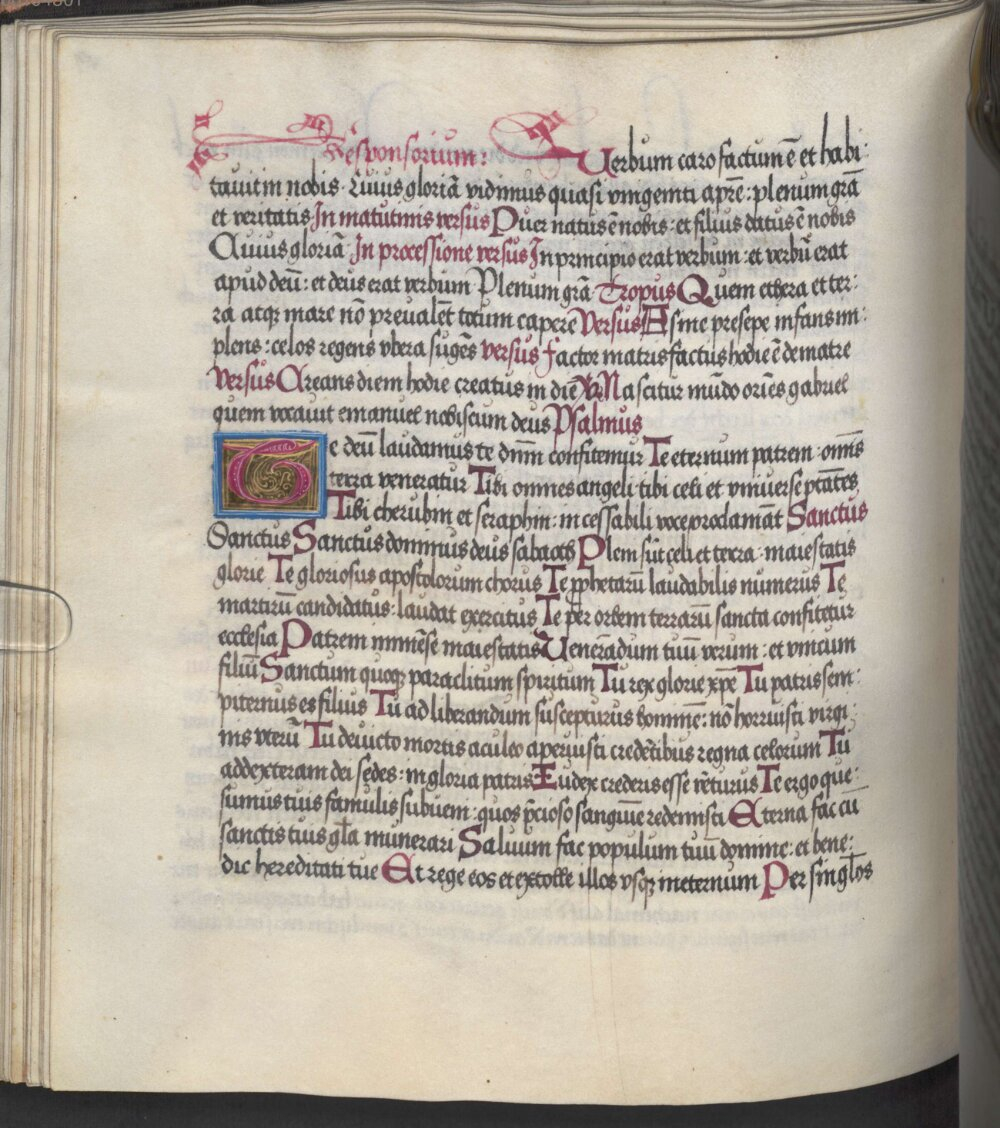 Responsorium: Verbum caro factum ē et habi:
tauit in nobis. Cuius gloriā vidimus quasi vnigeniti a pr̄e: plenum gr̄a
et veritatis In matutinis versus Puer natus ē nobis: et filius datus ē nobis
Cuius gloriā. In processione versus In principio erat verbum: et verbū erat
apud deū: et deus erat verbum Plenum gr̄a Tropus Quem ethera et ter:
ra atq; mare nō preualēt totum capere Versus Asine presepe infans im:
plens: celos regens vbera sugēs versus factor matris factus hodie ē de matre
Versus Creans diem hodie creatus in die Vͬ Nascitur mūdo oriēs gabriel
quem vocauit emanuel nobiscum deus Psalmus
Te deū laudamus te dnm̄ confitemur Te eternum patrem: omīs
terra veneratur Tibi omnes angeli tibi celi et vniuerse ptātes
Tibi cherubin et seraphin: incessabili voce proclamāt Sanctus
Sanctus Sanctus dominus deus sabaoth Pleni sūt celi et terra: maiestatis
glorie Te gloriosus apostolorum chorus Te ꝓphetarū laudabilis numerus Te
martirū candidatus: laudat exercitus Te per orbem terrarū sancta confitetur
ecclesia Patrem immēse maiestatis Venerādum tuū verum: et vnicum
filiū Sanctum quoq; paraclitum spiritum Tu rex glorie xp̄e Tu patris sem:
piternus es filius Tu ad liberandum suscepturus hominē: nō horruisti virgi:
nis vterū Tu deuicto mortis aculeo aperuisti credētibus regna celorum Tu
ad dexteram dei sedes: in gloria patris Iudex crederis esse vēturus Te ergo que:
sumus tuis famulis subueni: quos p̄cioso sanguīe redemisti Eterna fac cū
sanctis tuis gl̄a munerari Saluum fac populum tuū domine: et bene:
dic hereditati tue Et rege eos et extolle illos vsq; in eternum Per singl̄os